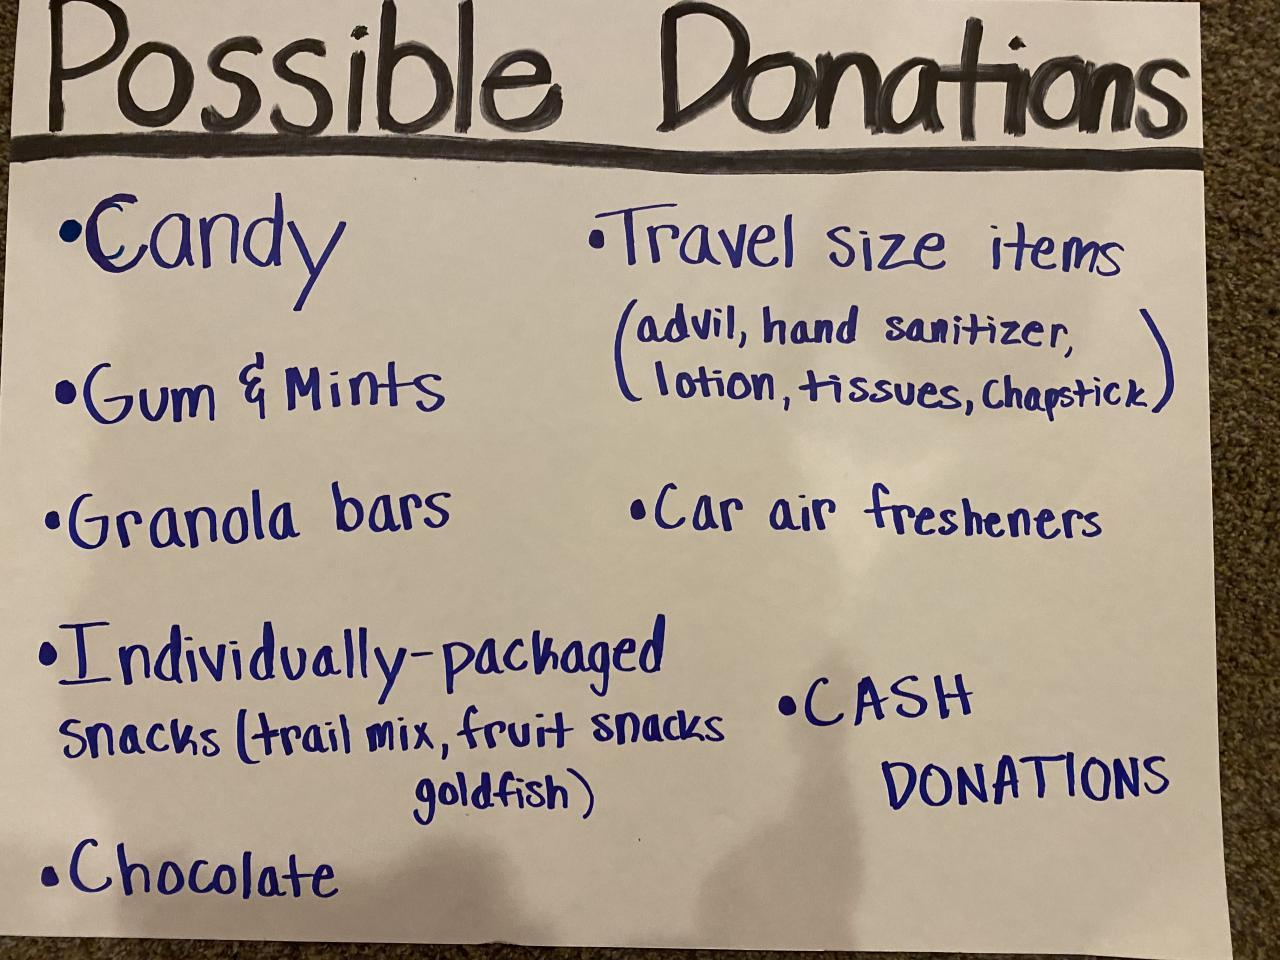 Possible Donations
•Candy
•Gum & Mints
•Granola bars
•Individually-packaged
snacks (trail mix, fruit snacks
goldfish)
•Chocolate
•Travel size items
(advil, hand sanitizer,
lotion, tissues, Chapstick)
•Car air fresheners
•CASH
DONATIONS